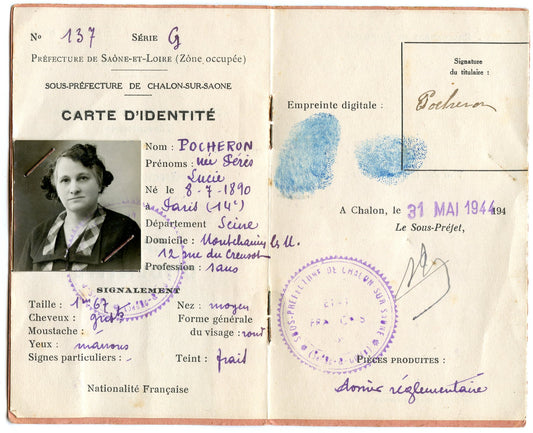 N° 137 SÉRIE G
PRÉFECTURE DE SAÔNE-ET-LOIRE (Zône occupée)
SOUS-PRÉFECTURE DE CHALON-SUR-SAONE
CARTE D'IDENTITÉ
Nom : POCHERON
Prénoms : née Pérès
Lucie
Né le 8-7-1890
à Paris (14e)
Département Seine
Domicile : Montchanin les M.
12 rue du Creusot
Profession : sans
SIGNALEMENT
Taille : 1m67
Cheveux : gris
Moustache :
Yeux : marrons
Signes particuliers : -
Nez : moyen
Forme générale
du visage : rond
Teint : frais
Nationalité Française
Signature
du titulaire :
Pocheron
Empreinte digitale :
A Chalon, le 31 MAI 1944 194
Le Sous-Préfet,
SOUS-PRÉFECTURE DE CHALON SUR SAONE
PIÈCES PRODUITES :
dossier réglementaire